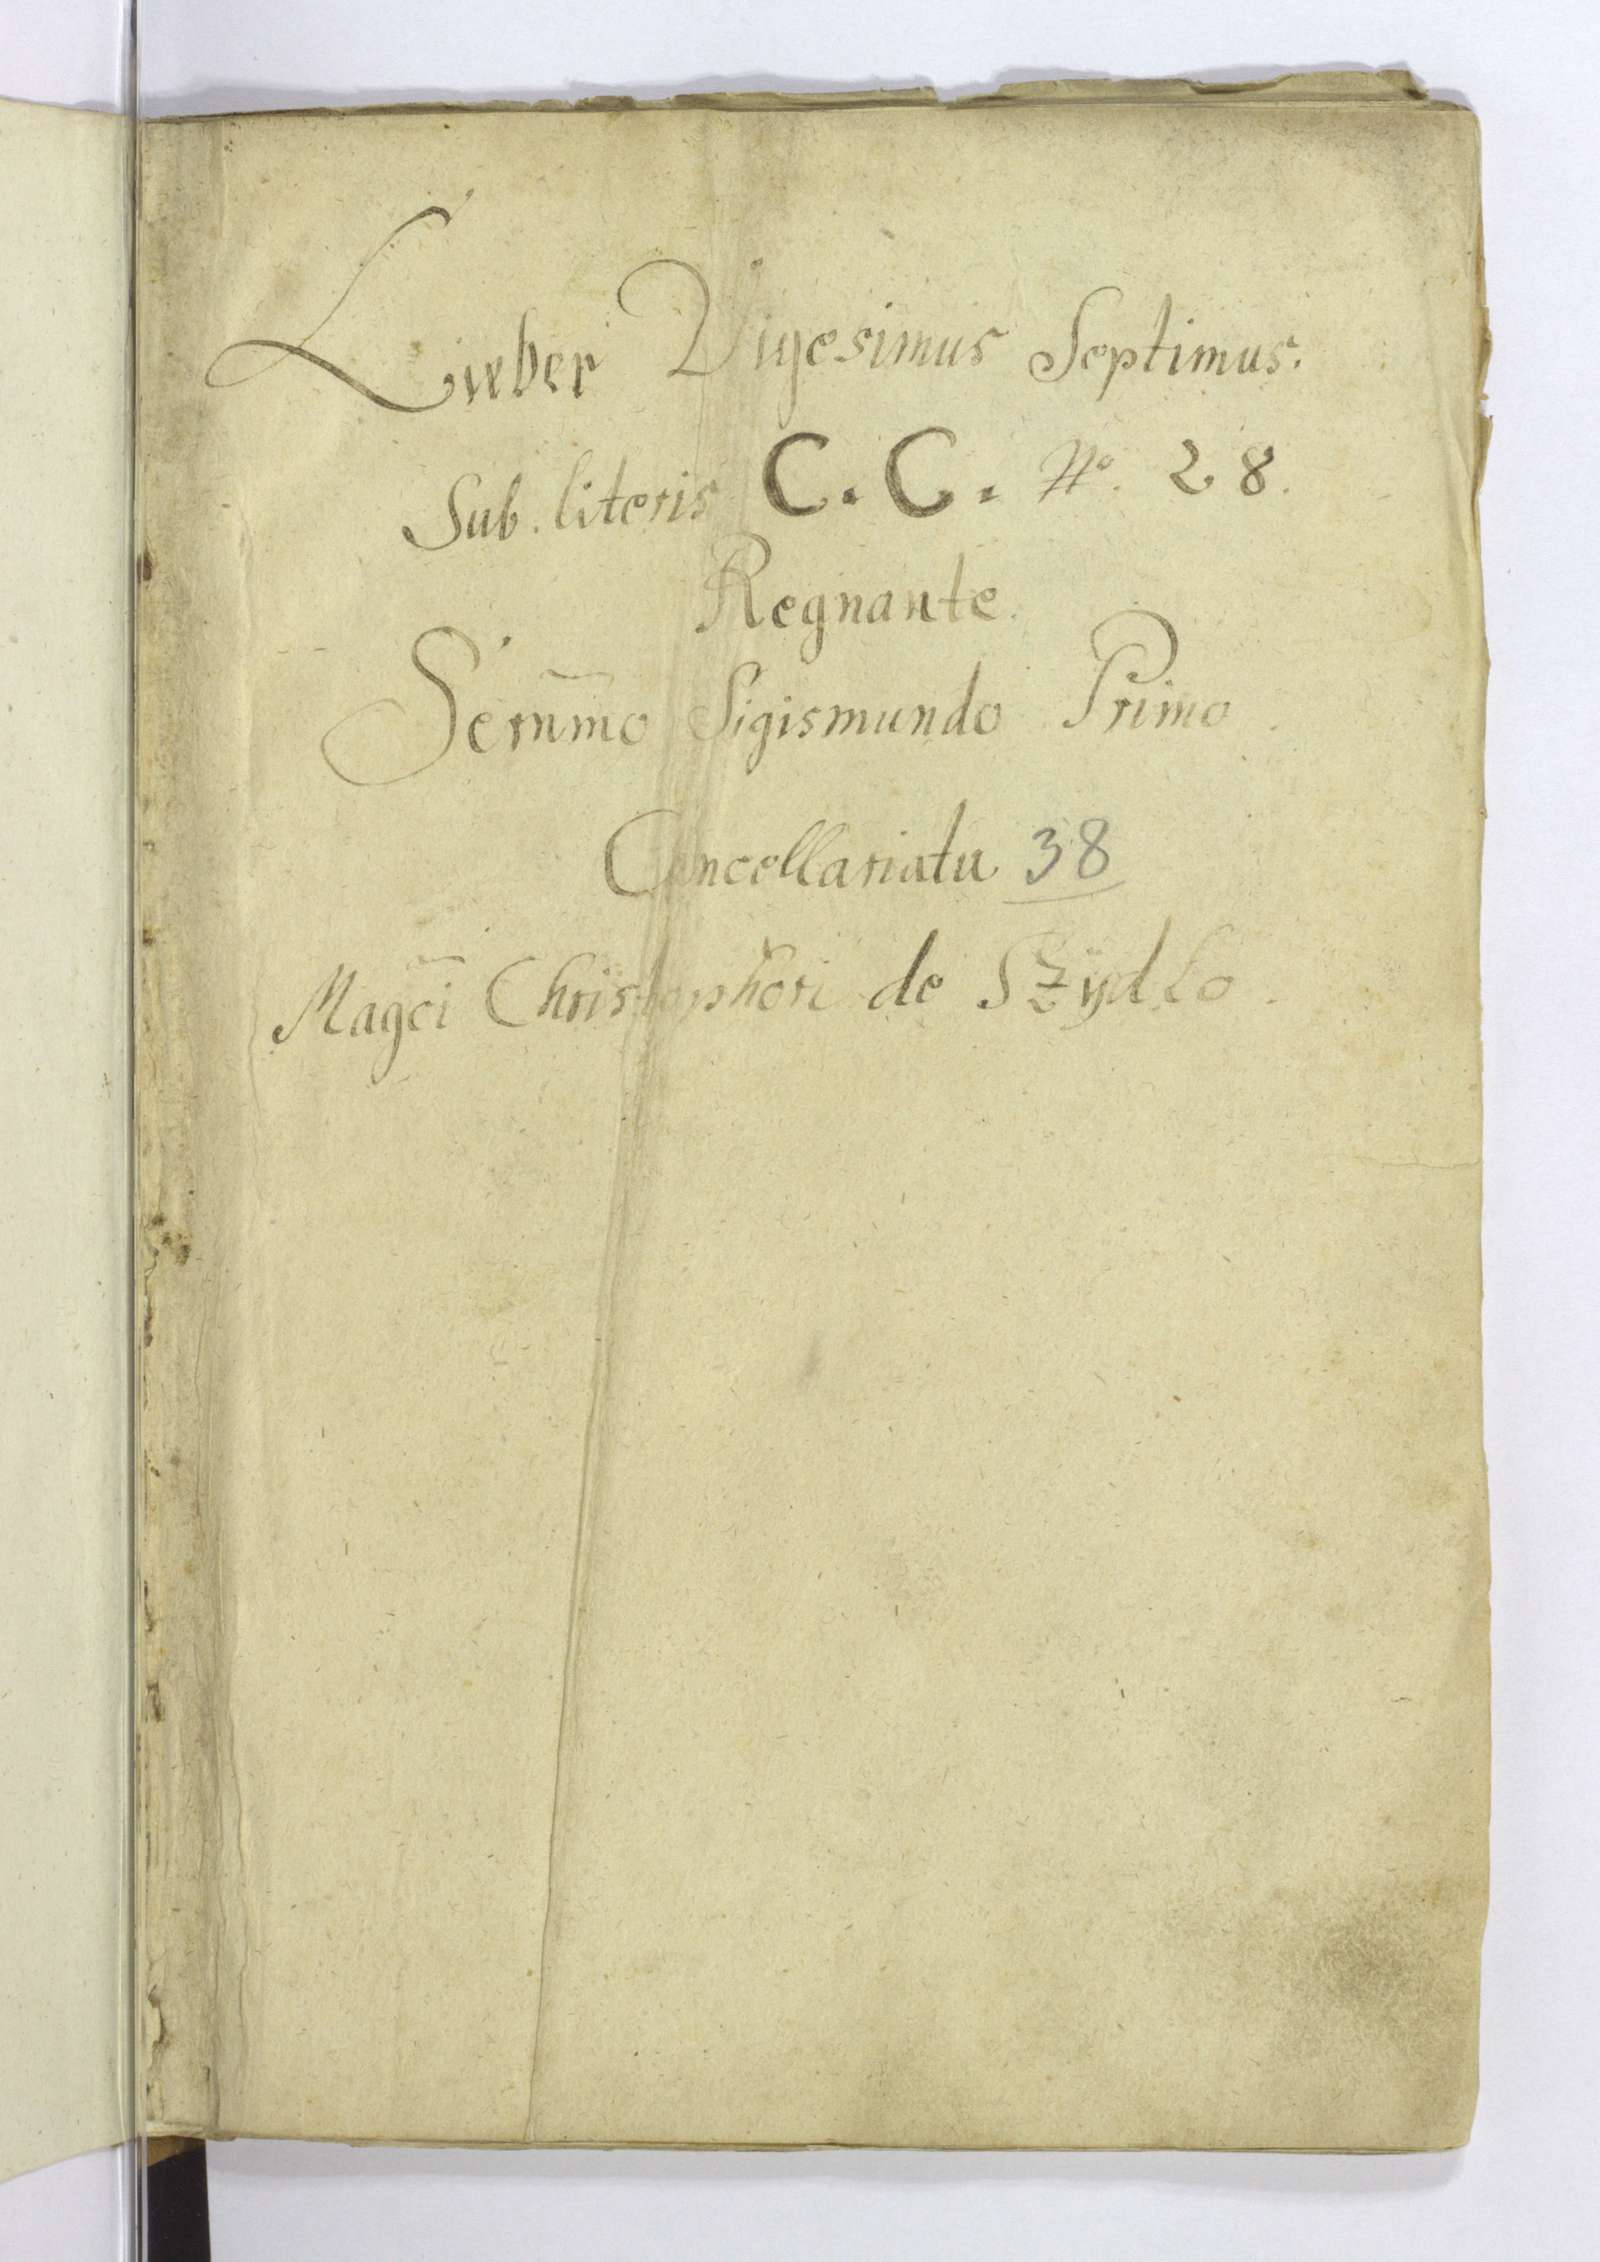 Lieber Vigesimus Septimus.
Sub. literis C. C. No. 28.
Regnante.
Serñmo Sigismundo Primo
Cancellariatu 38
Magci Christophori de Szydło.